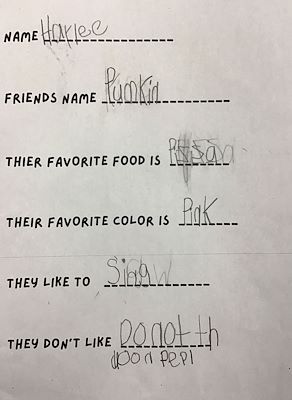 NAME Harlee
FRIENDS NAME Pumkin
THIER FAVORITE FOOD IS
THEIR FAVORITE COLOR IS Pink
THEY LIKE TO Sing
THEY DON'T LIKE Donot th